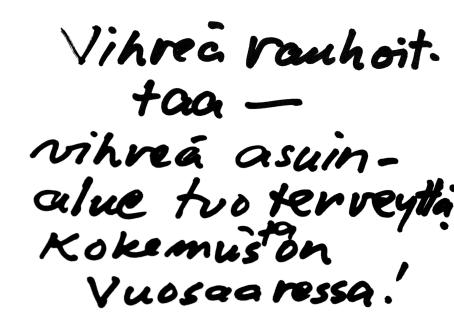 Vihreä rauhoit-
taa —
vihreä asuin-
alue tuo terveyttä.
Kokemusta on
Vuosaaressa!